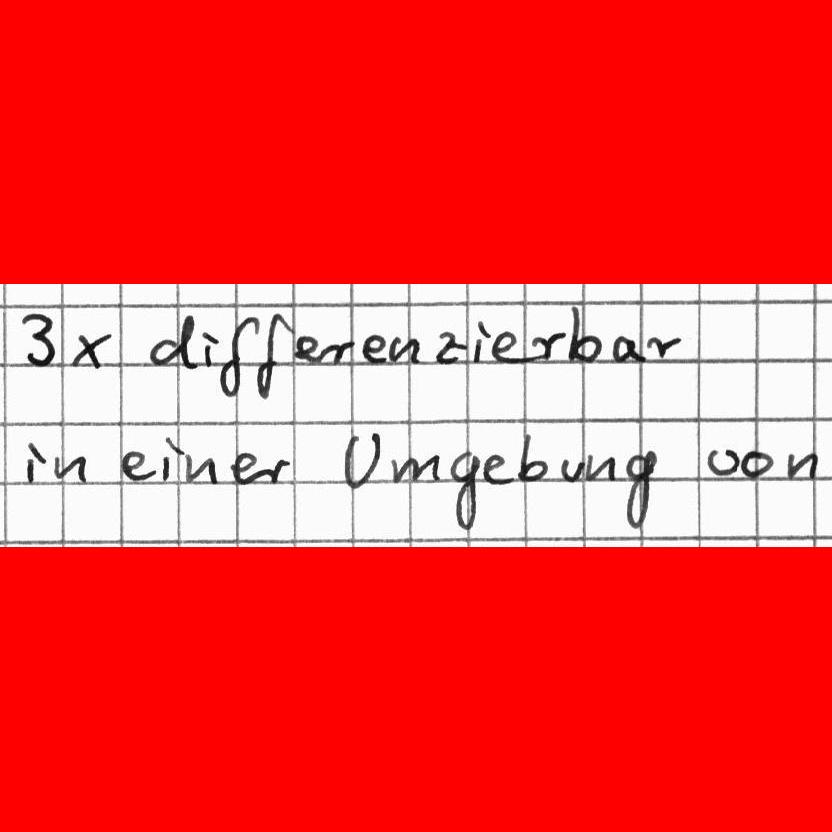 3x differenzierbar
in einer Umgebung von